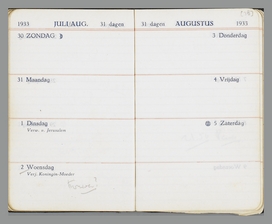 1933 JULI/AUG. 31 dagen
30 ZONDAG
31 Maandag
1 Dinsdag
Verw. v. Jerusalem
2 Woensdag
Verj. Koningin-Moeder
31 dagen AUGUSTUS 1933
3 Donderdag
4 Vrijdag
5 Zaterdag